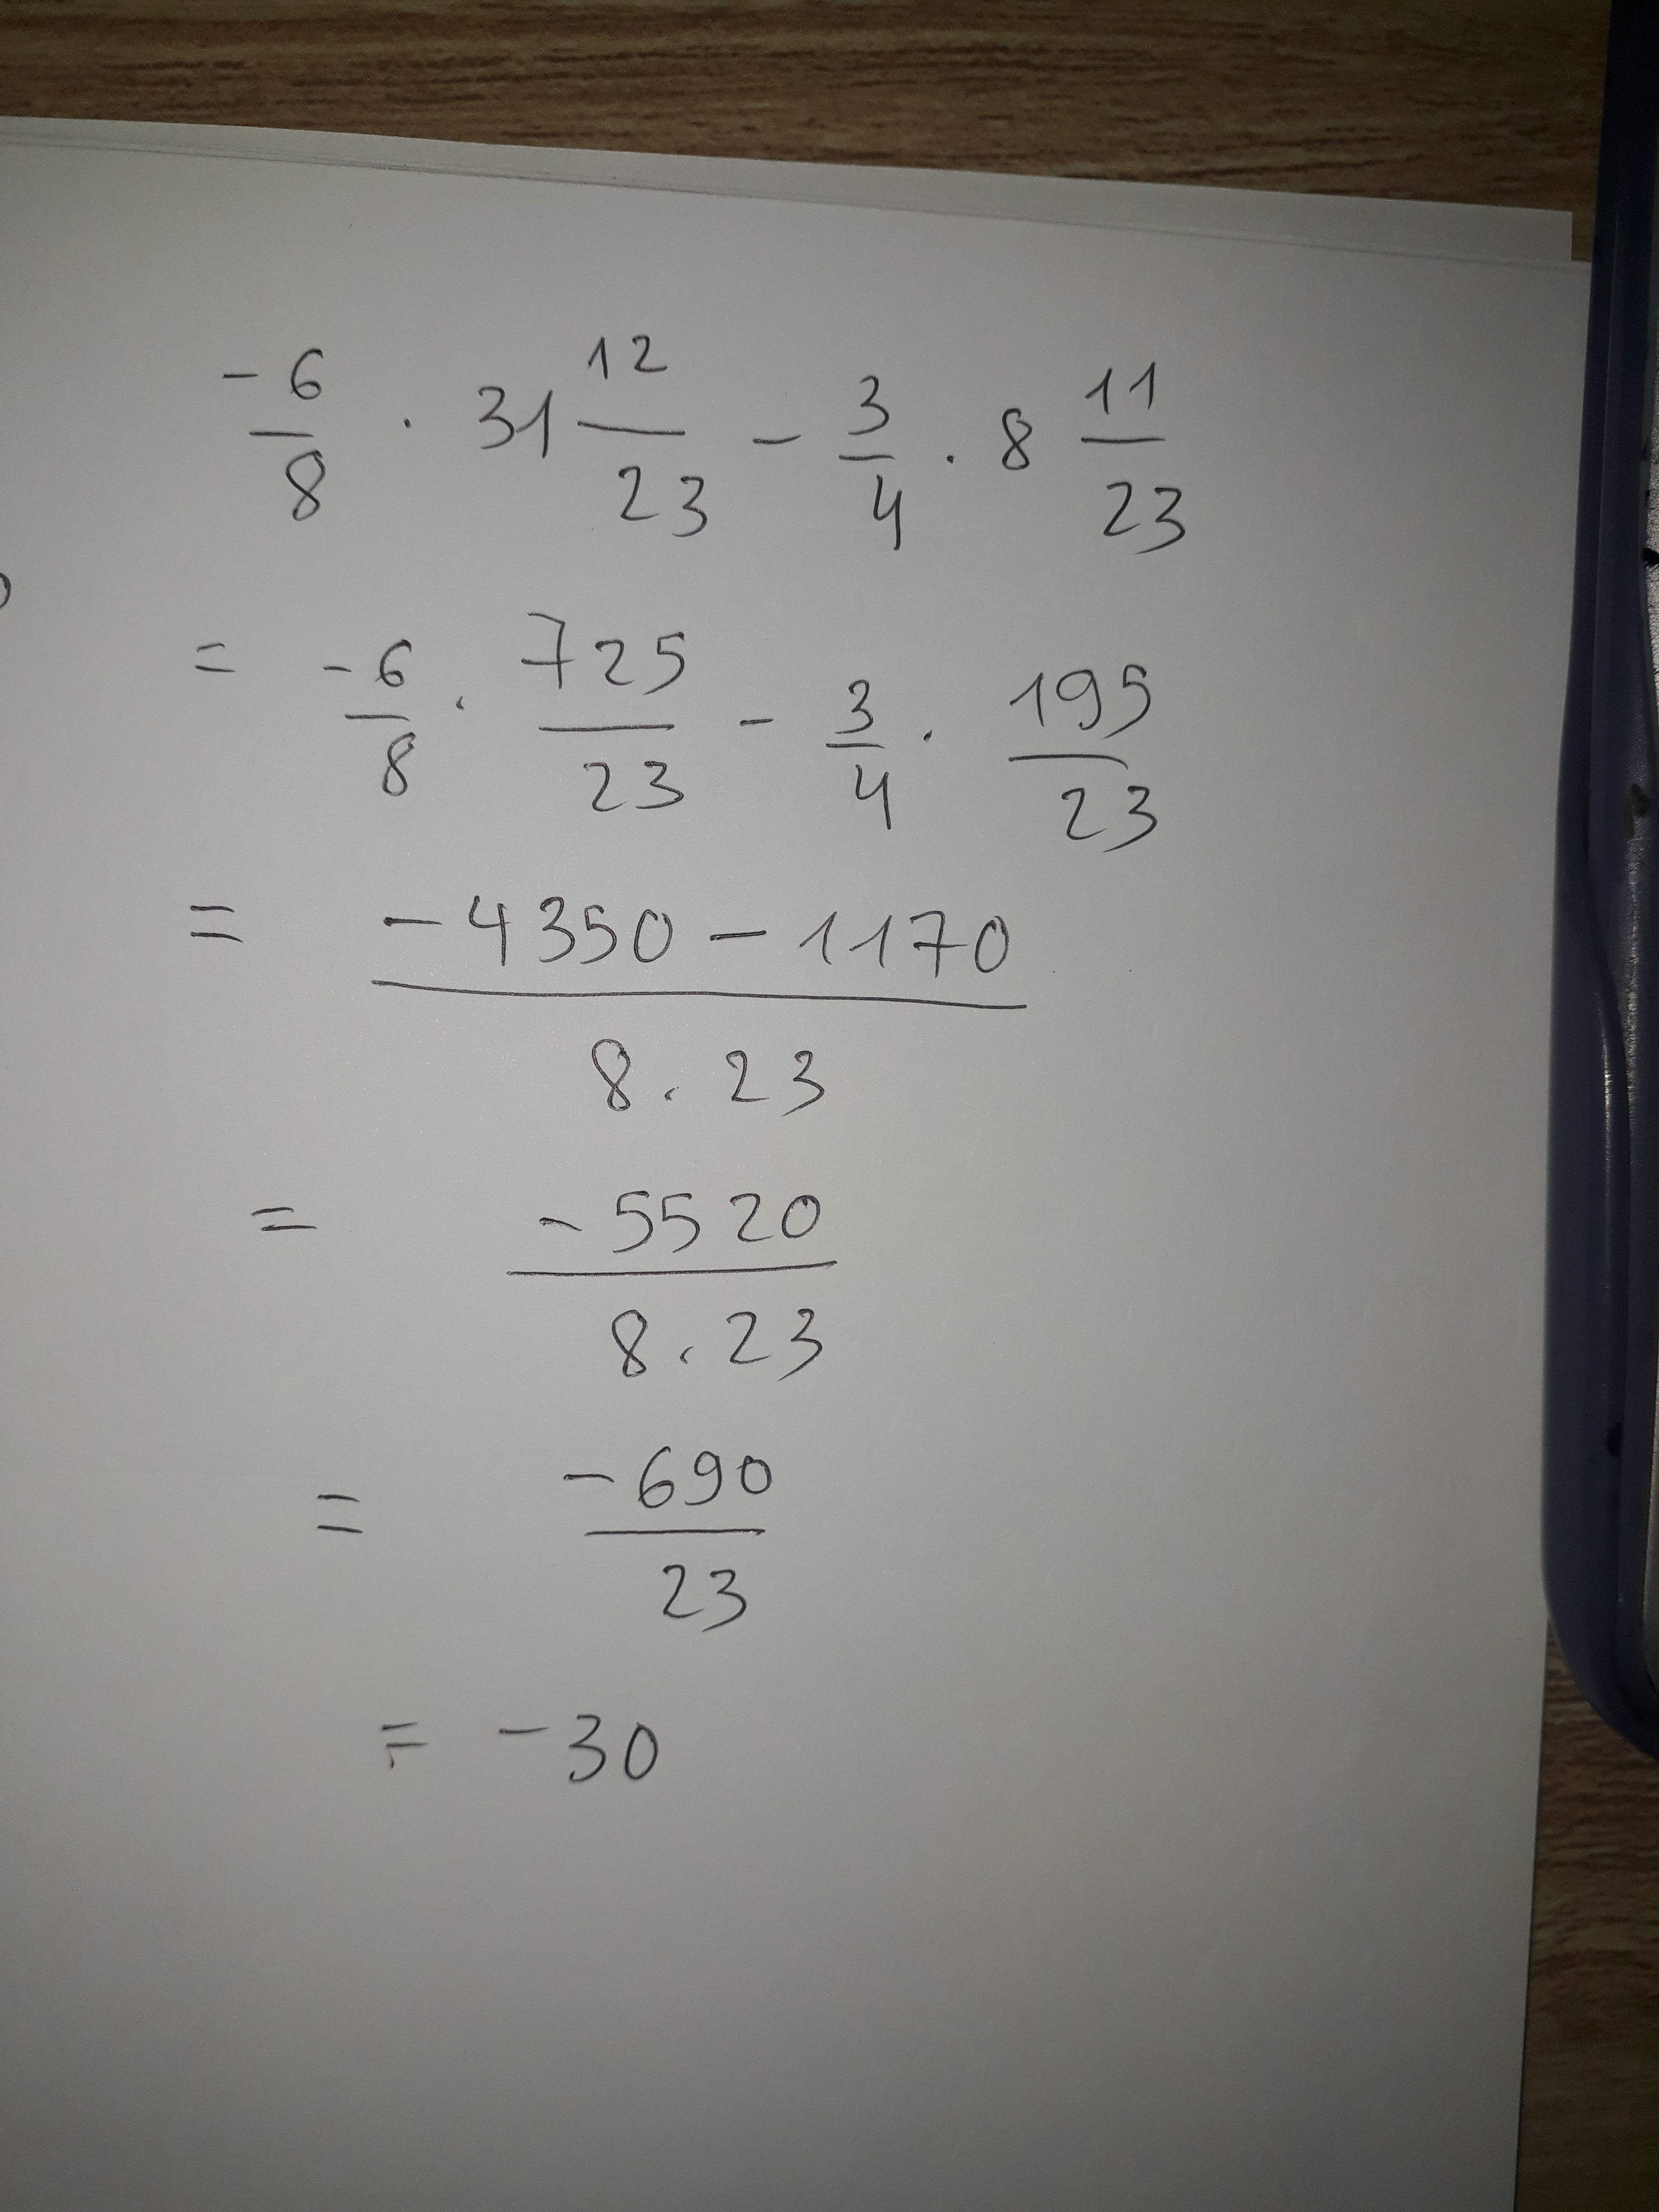 -6/8 . 31 12/23 - 3/4 . 8 11/23
= -6/8 . 725/23 - 3/4 . 195/23
= (-4350 - 1170)/(8 . 23)
= -5520/(8 . 23)
= -690/23
= -30